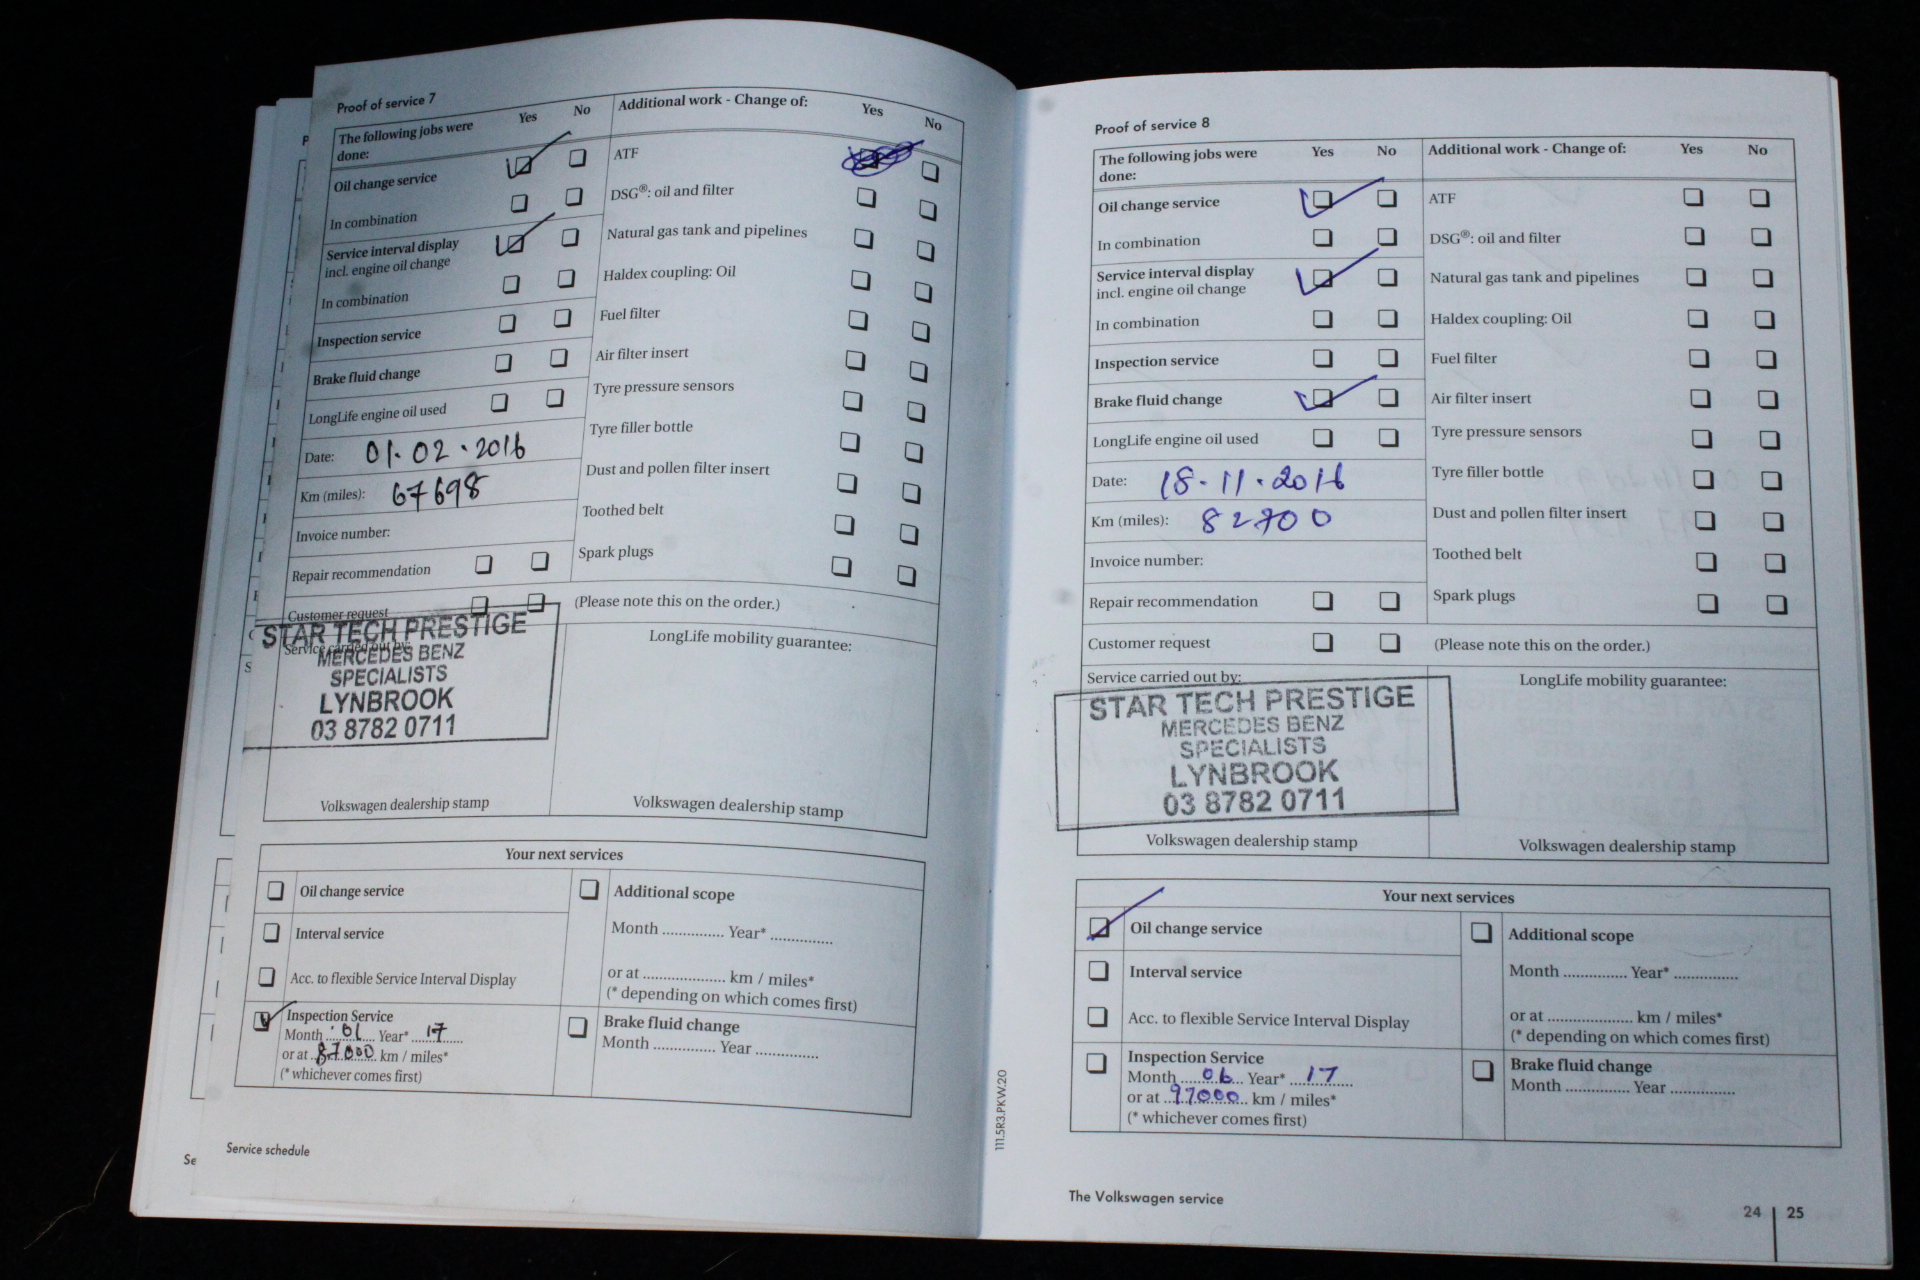 Proof of service 7
The following jobs were done: Yes No
Additional work - Change of: Yes No
Oil change service
In combination
Service interval display
incl. engine oil change
In combination
Inspection service
Brake fluid change
LongLife engine oil used
Date: 01.02.2016
Km (miles): 67698
Invoice number:
Repair recommendation
Customer request
ATF
DSG®: oil and filter
Natural gas tank and pipelines
Haldex coupling: Oil
Fuel filter
Air filter insert
Tyre pressure sensors
Tyre filler bottle
Dust and pollen filter insert
Toothed belt
Spark plugs
(Please note this on the order.)
Service carried out by:
STAR TECH PRESTIGE
MERCEDES BENZ
SPECIALISTS
LYNBROOK
03 8782 0711
Volkswagen dealership stamp
LongLife mobility guarantee:
Volkswagen dealership stamp
Your next services
Oil change service
Interval service
Acc. to flexible Service Interval Display
Inspection Service
Month 01 Year* 17
or at 87000 km / miles*
(* whichever comes first)
Additional scope
Month ............... Year* ...............
or at .................... km / miles*
(* depending on which comes first)
Brake fluid change
Month ............... Year ...............
Service schedule
Se
Proof of service 8
The following jobs were done: Yes No
Additional work - Change of: Yes No
Oil change service
In combination
Service interval display
incl. engine oil change
In combination
Inspection service
Brake fluid change
LongLife engine oil used
Date: 18.11.2016
Km (miles): 82700
Invoice number:
Repair recommendation
Customer request
ATF
DSG®: oil and filter
Natural gas tank and pipelines
Haldex coupling: Oil
Fuel filter
Air filter insert
Tyre pressure sensors
Tyre filler bottle
Dust and pollen filter insert
Toothed belt
Spark plugs
(Please note this on the order.)
Service carried out by:
STAR TECH PRESTIGE
MERCEDES BENZ
SPECIALISTS
LYNBROOK
03 8782 0711
Volkswagen dealership stamp
LongLife mobility guarantee:
Volkswagen dealership stamp
Your next services
Oil change service
Interval service
Acc. to flexible Service Interval Display
Inspection Service
Month 06 Year* 17
or at 97000 km / miles*
(* whichever comes first)
Additional scope
Month ............... Year* ...............
or at .................... km / miles*
(* depending on which comes first)
Brake fluid change
Month ............... Year ...............
111.5R3.PKW.20
The Volkswagen service
24 | 25